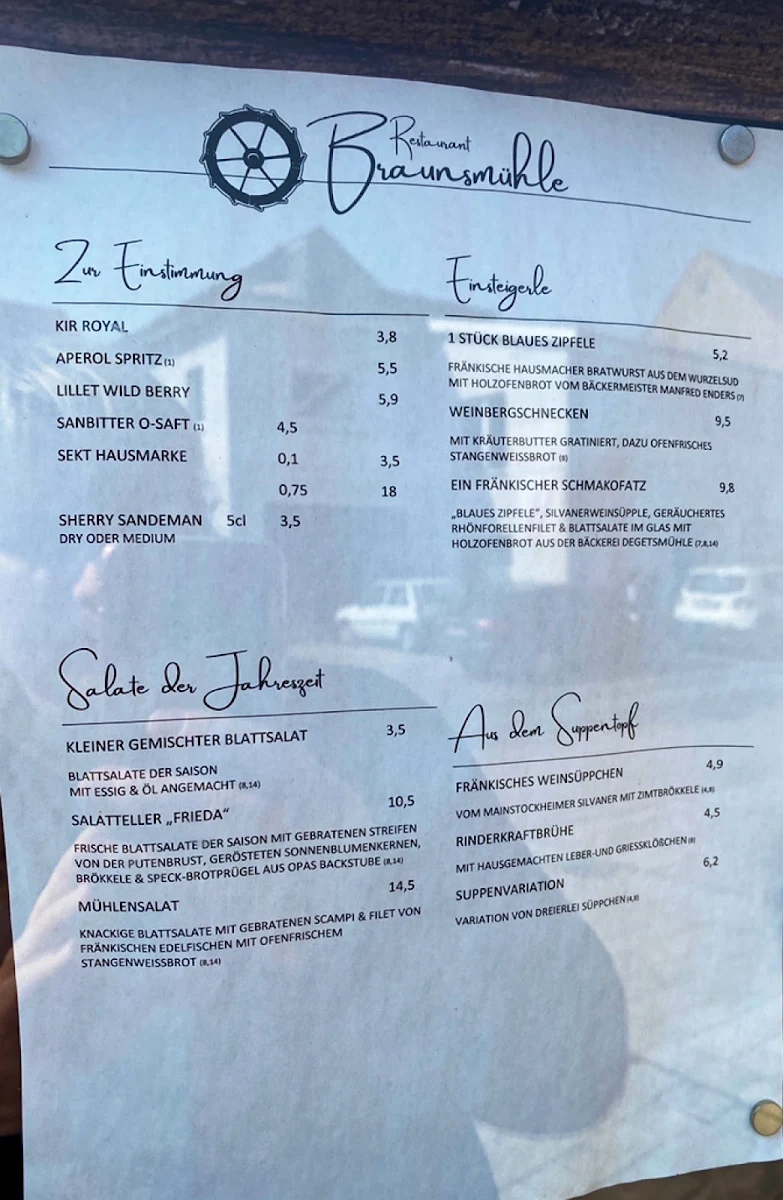 Restaurant
Braunsmühle
Zur Einstimmung
KIR ROYAL 3,8
APEROL SPRITZ (1) 5,5
LILLET WILD BERRY 5,9
SANBITTER O-SAFT (1) 4,5
SEKT HAUSMARKE 0,1 3,5
0,75 18
SHERRY SANDEMAN 5cl 3,5
DRY ODER MEDIUM
Einsteigerle
1 STÜCK BLAUES ZIPFELE 5,2
FRÄNKISCHE HAUSMACHER BRATWURST AUS DEM WURZELSUD
MIT HOLZOFENBROT VOM BÄCKERMEISTER MANFRED ENDERS (7)
WEINBERGSCHNECKEN 9,5
MIT KRÄUTERBUTTER GRATINIERT, DAZU OFENFRISCHES
STANGENWEISSBROT (8)
EIN FRÄNKISCHER SCHMAKOFATZ 9,8
„BLAUES ZIPFELE“, SILVANERWEINSÜPPLE, GERÄUCHERTES
RHÖNFORELLENFILET & BLATTSALATE IM GLAS MIT
HOLZOFENBROT AUS DER BÄCKEREI DEGETSMÜHLE (7,8,14)
Salate der Jahreszeit
KLEINER GEMISCHTER BLATTSALAT 3,5
BLATTSALATE DER SAISON
MIT ESSIG & ÖL ANGEMACHT (8,14)
SALATTELLER „FRIEDA“ 10,5
FRISCHE BLATTSALATE DER SAISON MIT GEBRATENEN STREIFEN
VON DER PUTENBRUST, GERÖSTETEN SONNENBLUMENKERNEN,
BRÖKKELE & SPECK-BROTPRÜGEL AUS OPAS BACKSTUBE (8,14)
MÜHLENSALAT 14,5
KNACKIGE BLATTSALATE MIT GEBRATENEN SCAMPI & FILET VON
FRÄNKISCHEN EDELFISCHEN MIT OFENFRISCHEM
STANGENWEISSBROT (8,14)
Aus dem Suppentopf
FRÄNKISCHES WEINSÜPPCHEN 4,9
VOM MAINSTOCKHEIMER SILVANER MIT ZIMTBRÖKKELE (4,8)
RINDERKRAFTBRÜHE 4,5
MIT HAUSGEMACHTEN LEBER-UND GRIESSKLÖSSCHEN (8)
SUPPENVARIATION 6,2
VARIATION VON DREIERLEI SÜPPCHEN (4,8)